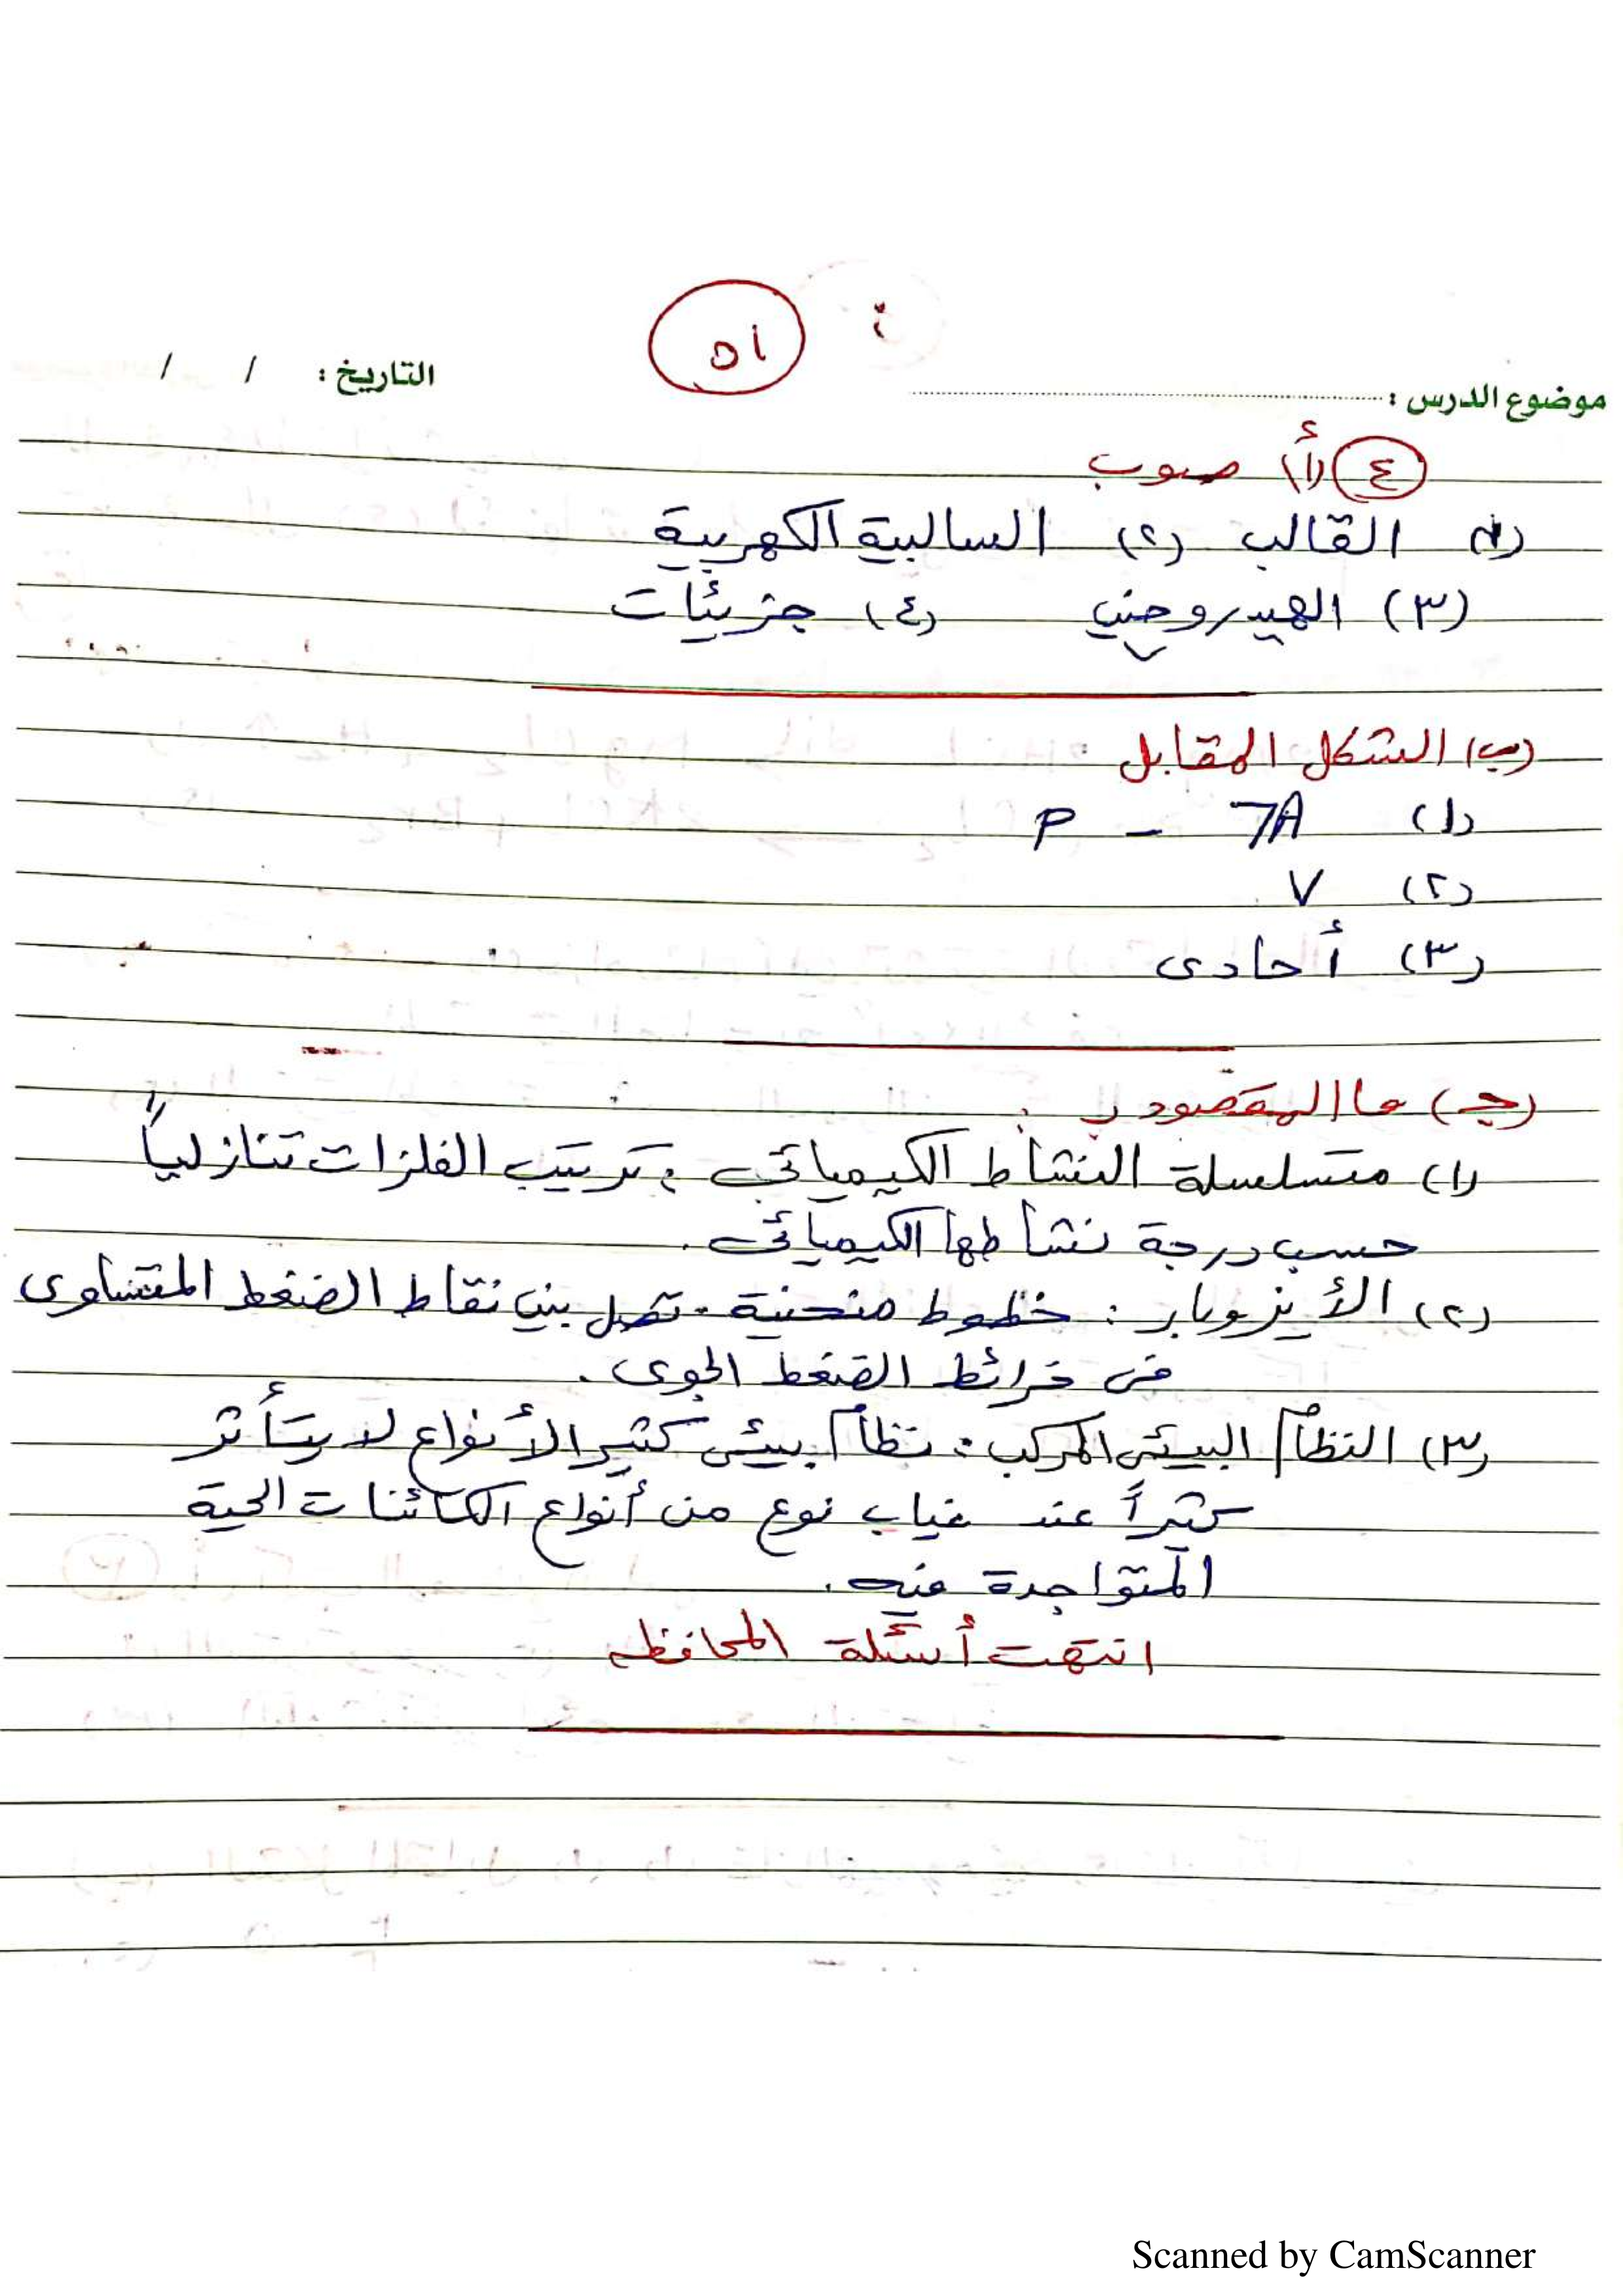 ٥١
موضوع الدرس : التاريخ : / /
٤ (أ) صوب
(١) القالب (٢) السالبية الكهربية
(٣) الهيدروجينى (٤) جزيئات
(ب) الشكل المقابل
(١) 7A - P
(٢) ٧
(٣) أحادى
(جـ) ما المقصود بـ :
(١) متسلسلة النشاط الكيميائى : ترتيب الفلزات تنازلياً
حسب درجة نشاطها الكيميائى .
(٢) الأيزوبار : خطوط منحنية تصل بين نقاط الضغط المتساوى
فى خرائط الضغط الجوى .
(٣) النظام البيئى المركب : نظام بيئى كثير الأنواع لا يتأثر
كثيراً عند غياب نوع من أنواع الكائنات الحية
المتواجدة فيه .
انتهت أسئلة المحافظه
Scanned by CamScanner